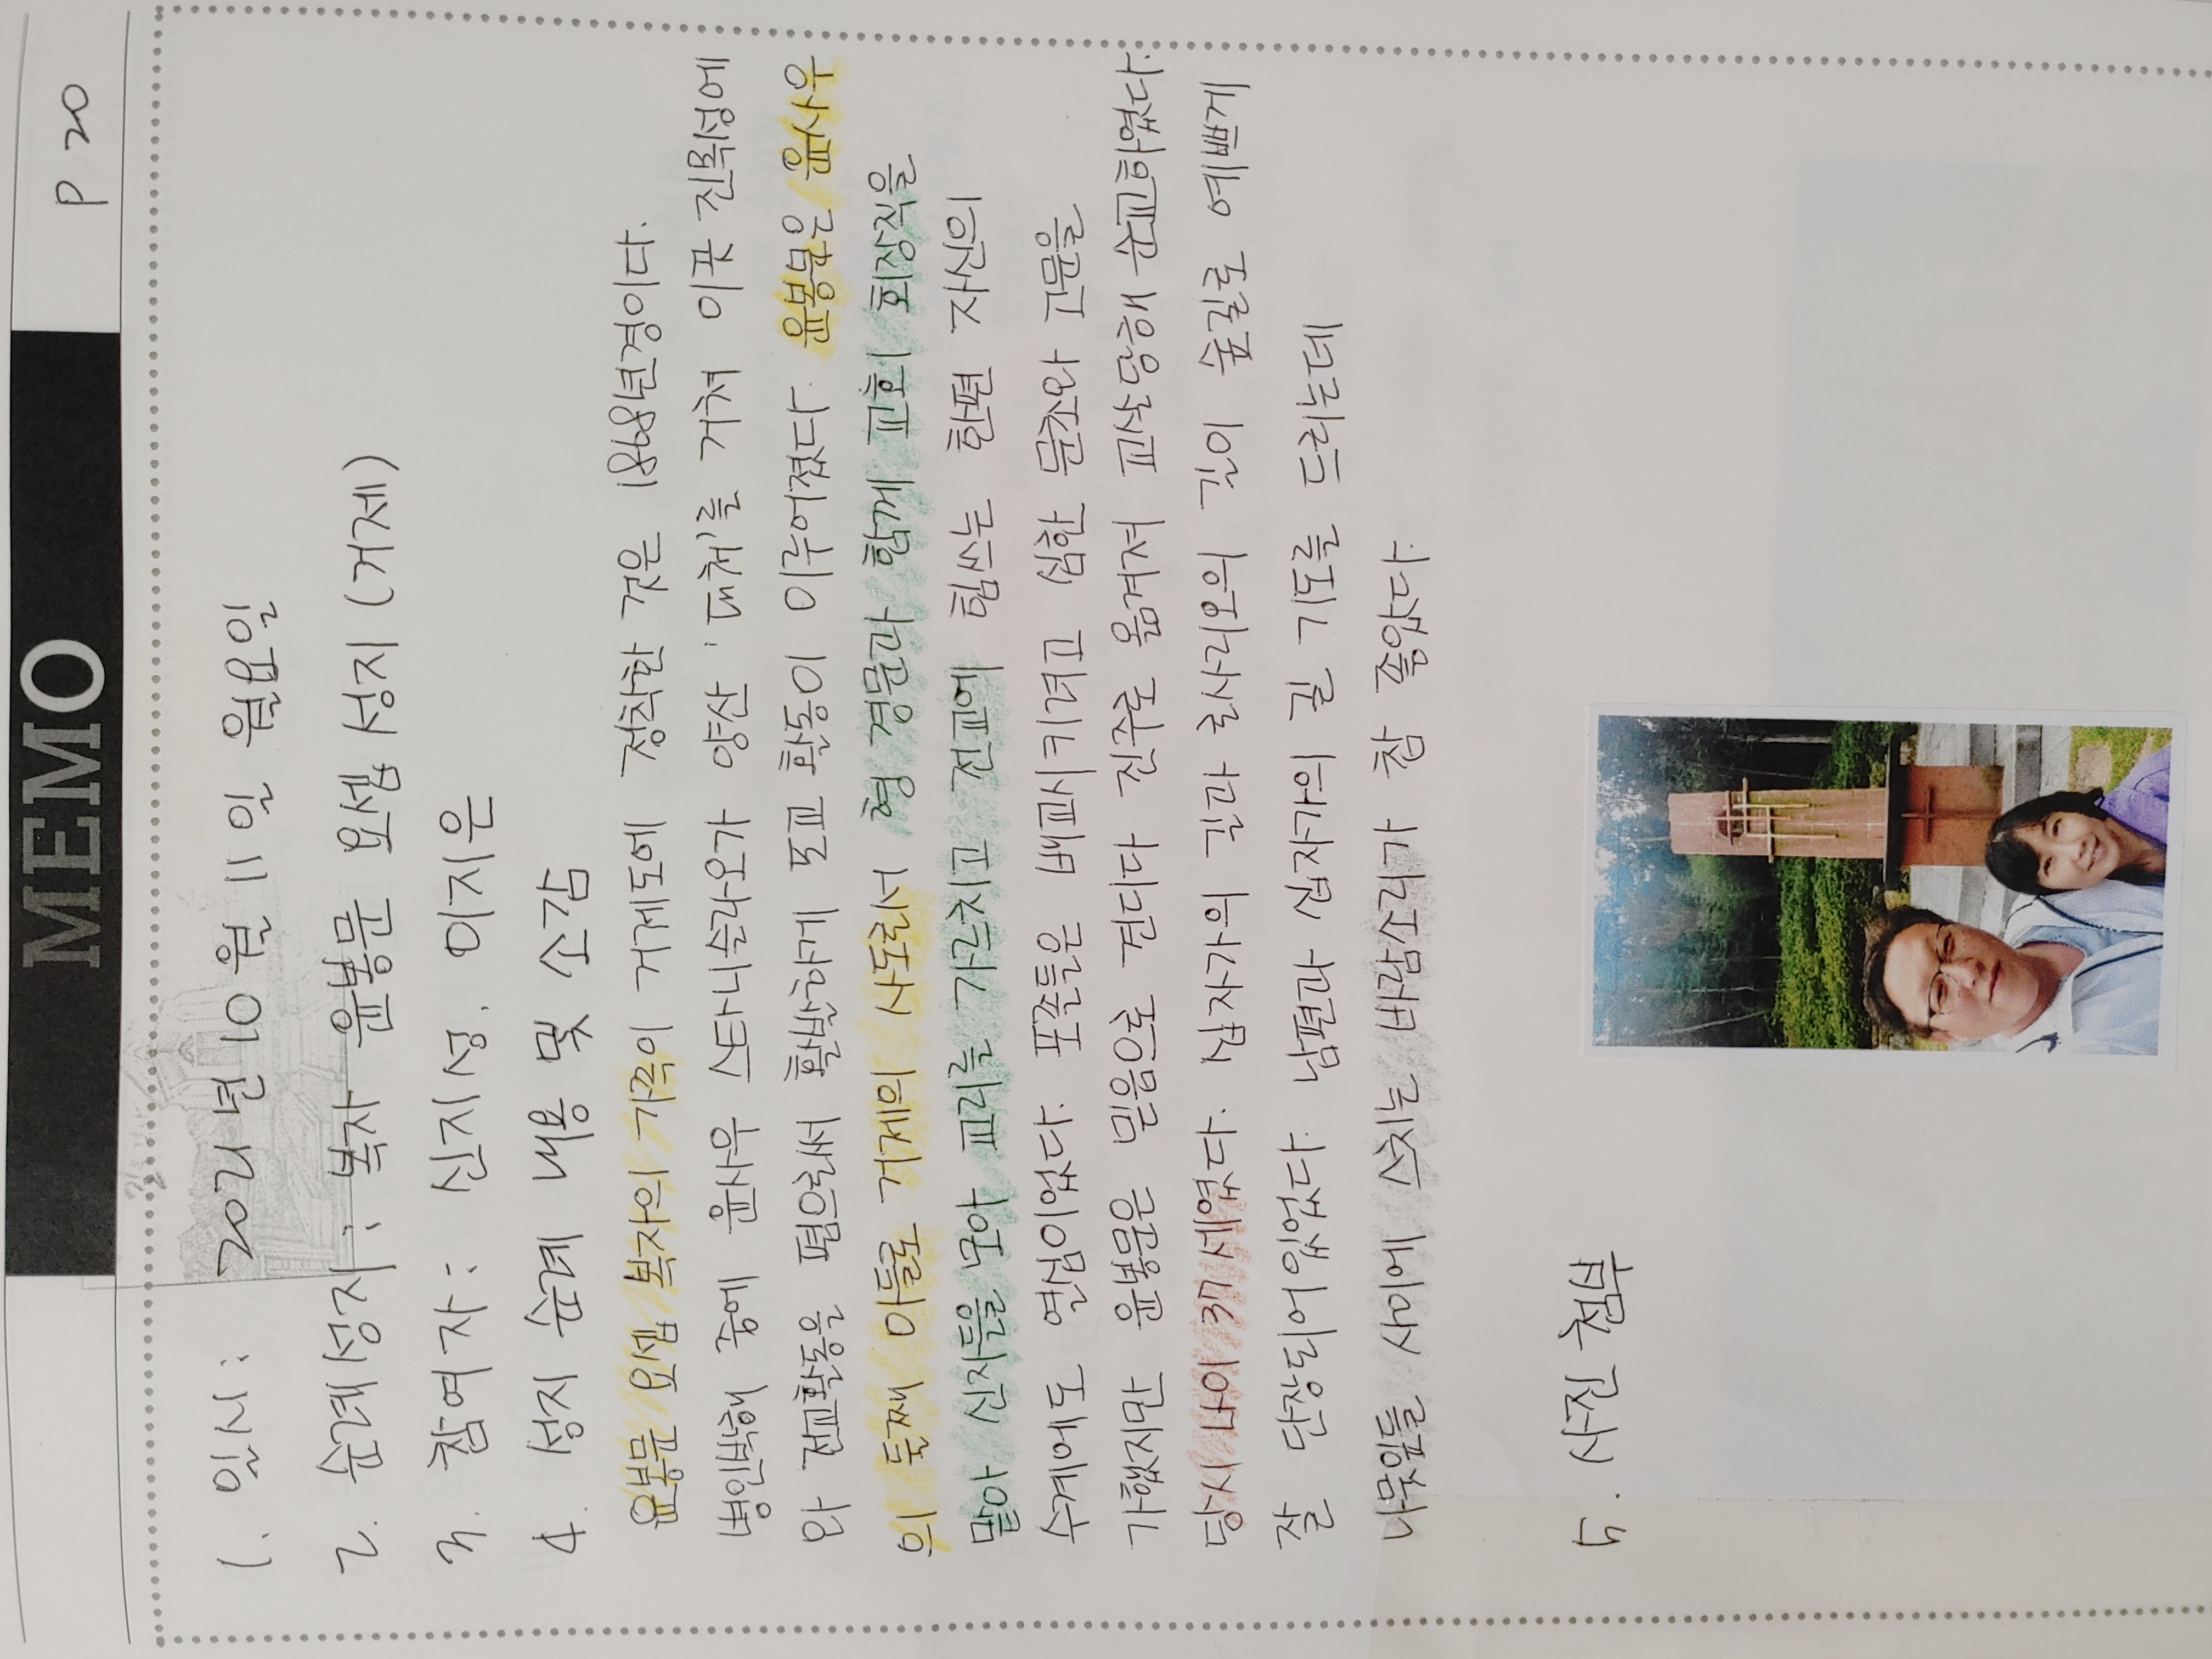 MEMO
P 20
1. 일시: 2021년 10월 11일 월요일
2. 순례성지: 복자 윤봉문 요셉 성지 (거제)
3. 참여자: 신지성, 이지은
4. 성지 순례 내용 및 소감
윤봉문 요셉 복자의 가족이 거제도에 정착한 것은 1868년경이다.
병인박해 중에 윤사우 스타니슬라오가 양산 '대처'를 거쳐 이곳 진목성에
와 전교활동을 폄으로써 활발하게 포교 활동이 이루어졌다. 윤봉문은 윤사우
의 둘째 아들로 거제의 사도로서 형 경문과 함께 교회 회장직을
맡아 신자들을 모아 교리를 가르치고 전교에 힘쓰는 한편 자신의
수계에도 열심이었다. 포졸들은 배교시키려고 심한 문초와 고문을
가했지만 윤봉문은 믿음으로 견디다 진주로 옮겨져 교살당해 순교하였다.
당시 나이 37세였다. 십자가의 길과 로사리오의 길이 숲길로 예쁘게
잘 단장되어있었다. 남편과 십자가의 길 기도를 드리는데
나뭇잎들 사이에 스치는 바람소리가 참 좋았다.
5. 사진 첨부